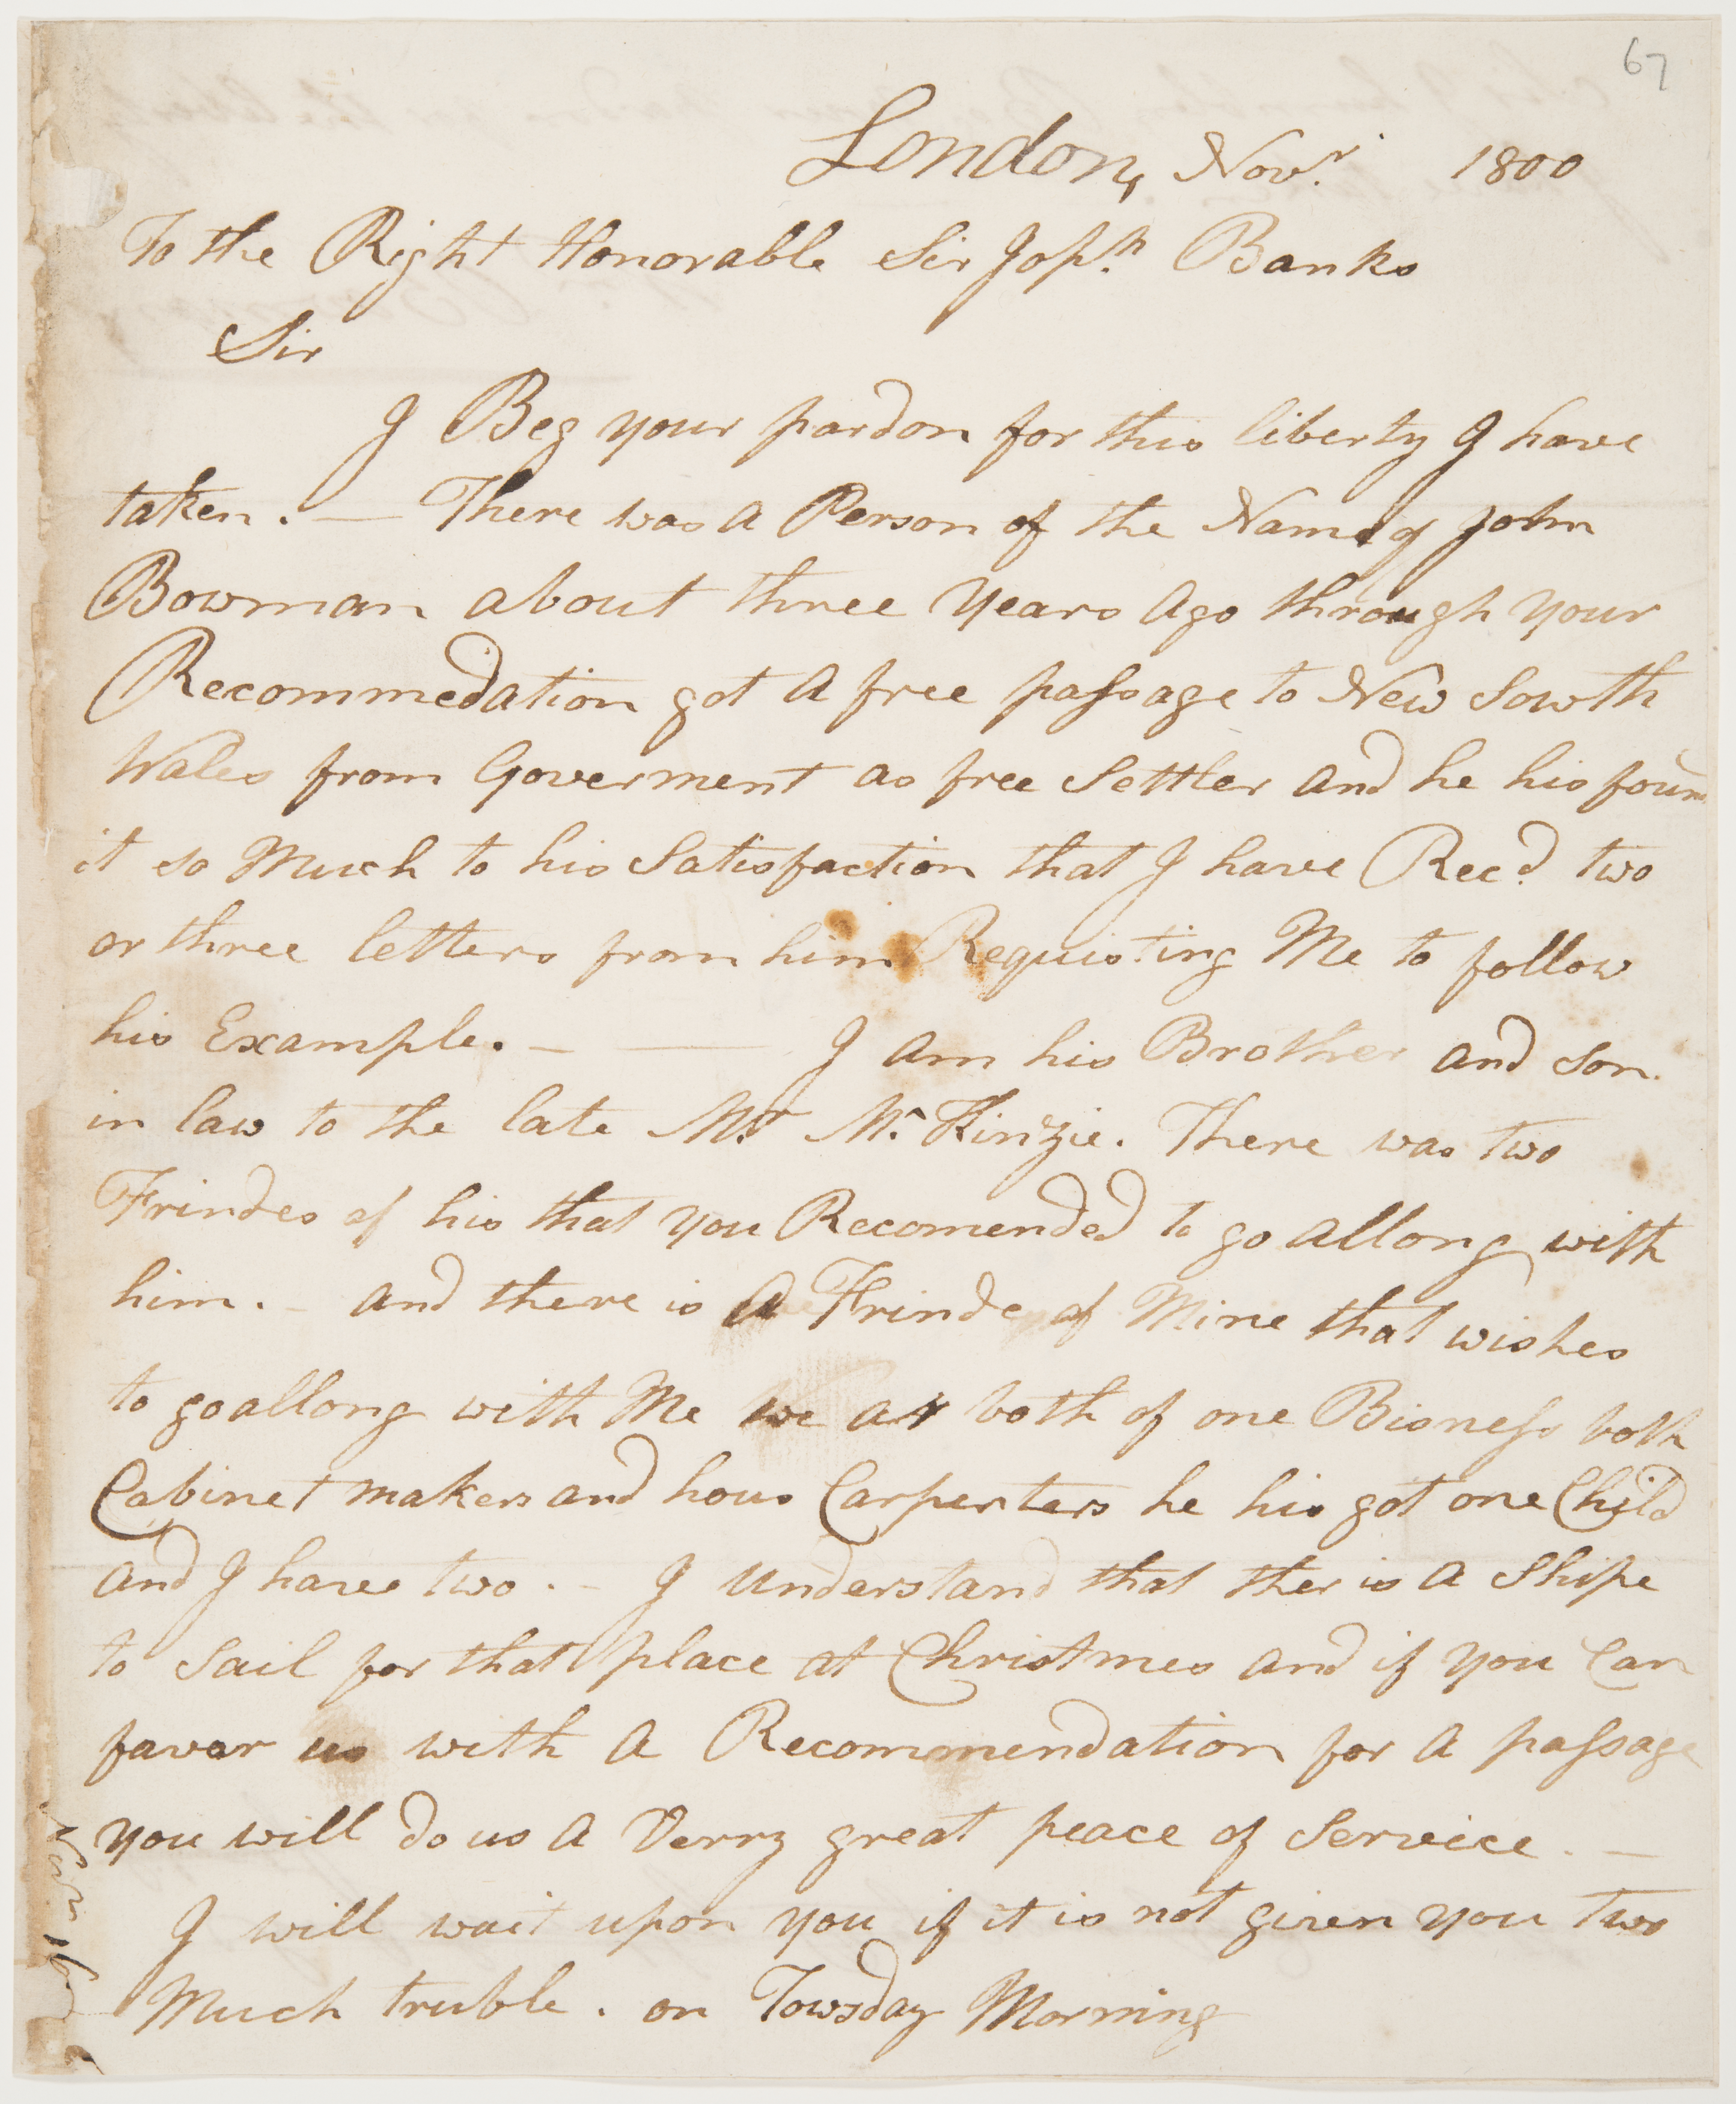 67
London, Novr. 1800
To the Right Honorable Sir Josph. Banks
Sir
I Beg your pardon for this liberty I have
taken. — There was A Person of the Name of John
Bowman about three Years Ago through your
Recommedation got A free passage to New Sowth
Wales from Goverment as free Settler And he his foun
it so Much to his Satisfaction that I have Recd. two
or three letters from him Requisting Me to follow
his Example. — — I Am his Brother And Son
in law to the late Mr. Mc.Kinzie. There was two
Frindes of his that you Recomended to go Allong with
him. - And there is A Frinde of Mine that wishes
to go allong with Me we ar both of one Bisness both
Cabinet makers and hous Carpenters he his got one Child
And I haves two. - I Understand that ther is A Shipe
to Sail for that place at Christmes And if you Can
favor us with A Recommendation for A passage
you will do us A Verry great peace of Service. —
I will wait upon you if it is not given you two
Much truble. on Towsday Morning
Novr. 16